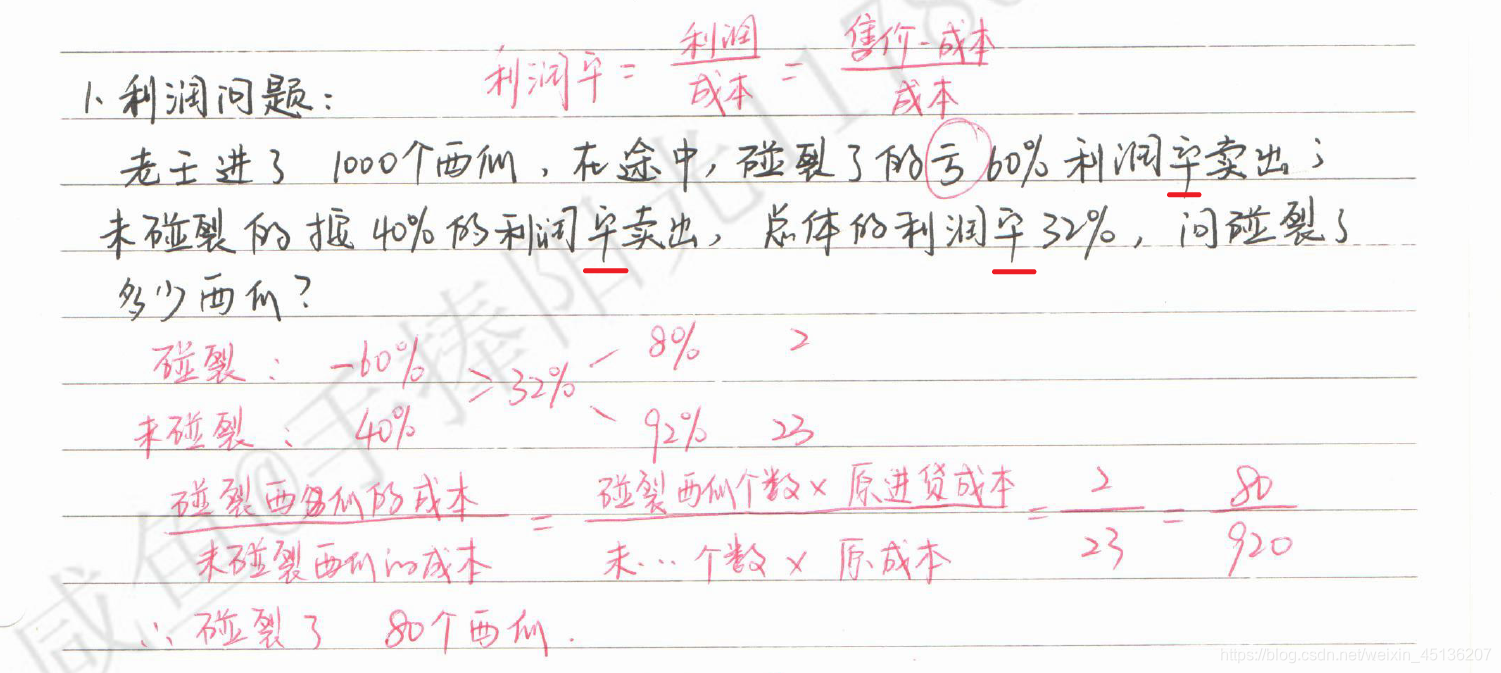 利润率 = 利润/成本 = 售价-成本/成本
1、利润问题：
老王进了 1000个西瓜，在途中，碰裂了的亏60%利润率卖出；
未碰裂的按40%的利润率卖出，总体的利润率32%，问碰裂了
多少西瓜？
碰裂： -60% > 32% 8% 2
未碰裂： 40% 92% 23
碰裂西瓜的成本/未碰裂西瓜的成本 = 碰裂西瓜个数×原进货成本/未…个数×原成本 = 2/23 = 80/920
∴碰裂了 80个西瓜.
咸鱼@手捧阳光1178
https://blog.csdn.net/weixin_45136207